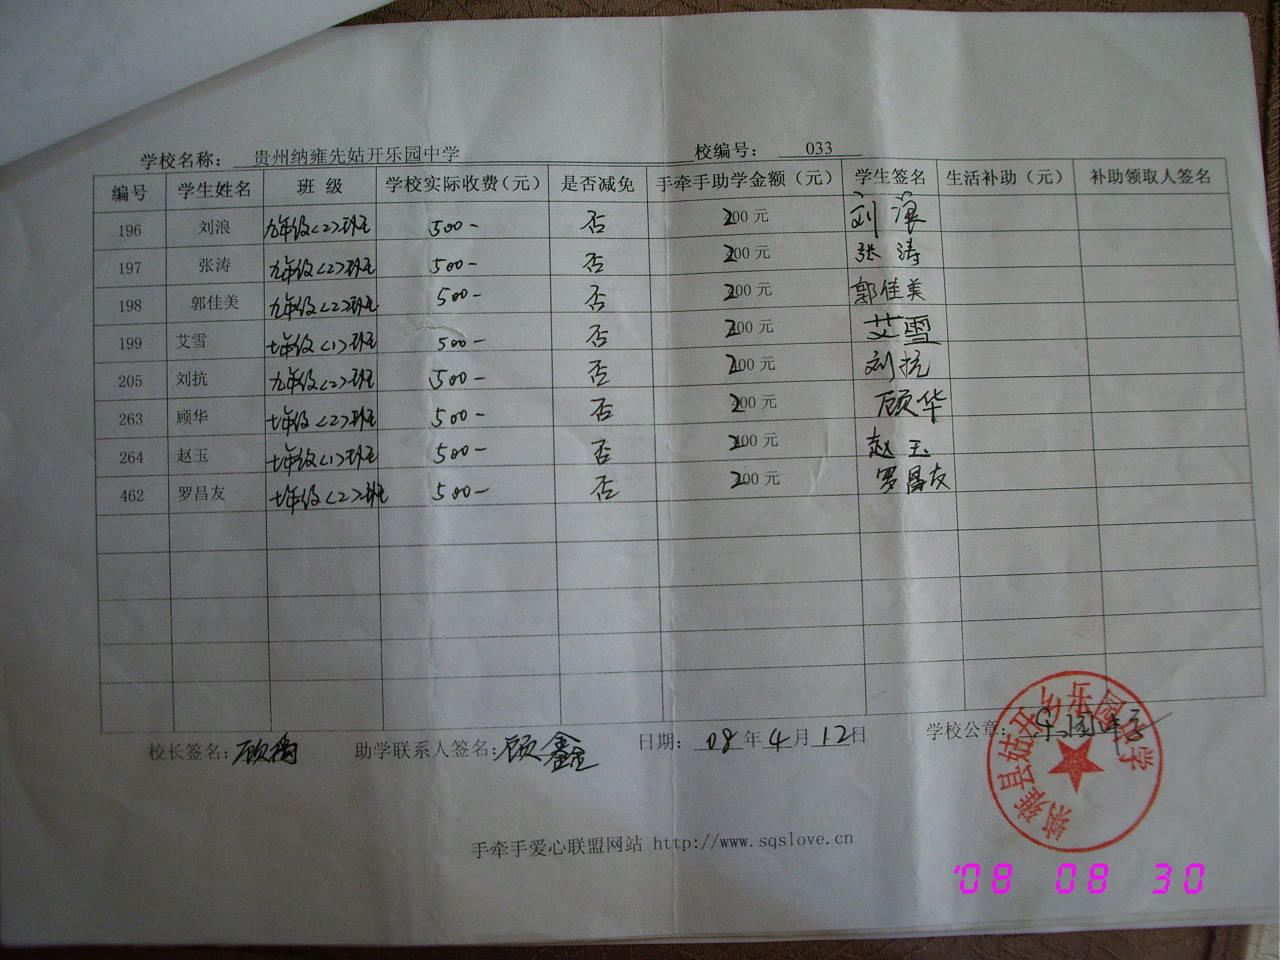 学校名称： 贵州纳雍先姑开乐园中学 校编号： 033
编号 学生姓名 班 级 学校实际收费（元） 是否减免 手牵手助学金额（元） 学生签名 生活补助（元） 补助领取人签名
196 刘浪 九年级<2>班 500- 否 200元 刘浪
197 张涛 九年级<2>班 500- 否 200元 张涛
198 郭佳美 九年级<2>班 500- 否 200元 郭佳美
199 艾雪 七年级<1>班 500- 否 200元 艾雪
205 刘抗 九年级<2>班 500- 否 200元 刘抗
263 顾华 七年级<2>班 500- 否 200元 顾华
264 赵玉 七年级<1>班 500- 否 200元 赵玉
462 罗昌友 七年级<2>班 500- 否 200元 罗昌友
校长签名： 顾 助学联系人签名： 顾鑫 日期： 08 年 4 月 12 日 学校公章： 乐园中学
纳雍县姑开乡乐园中学
手牵手爱心联盟网站 http://www.sqslove.cn
'08 08 30